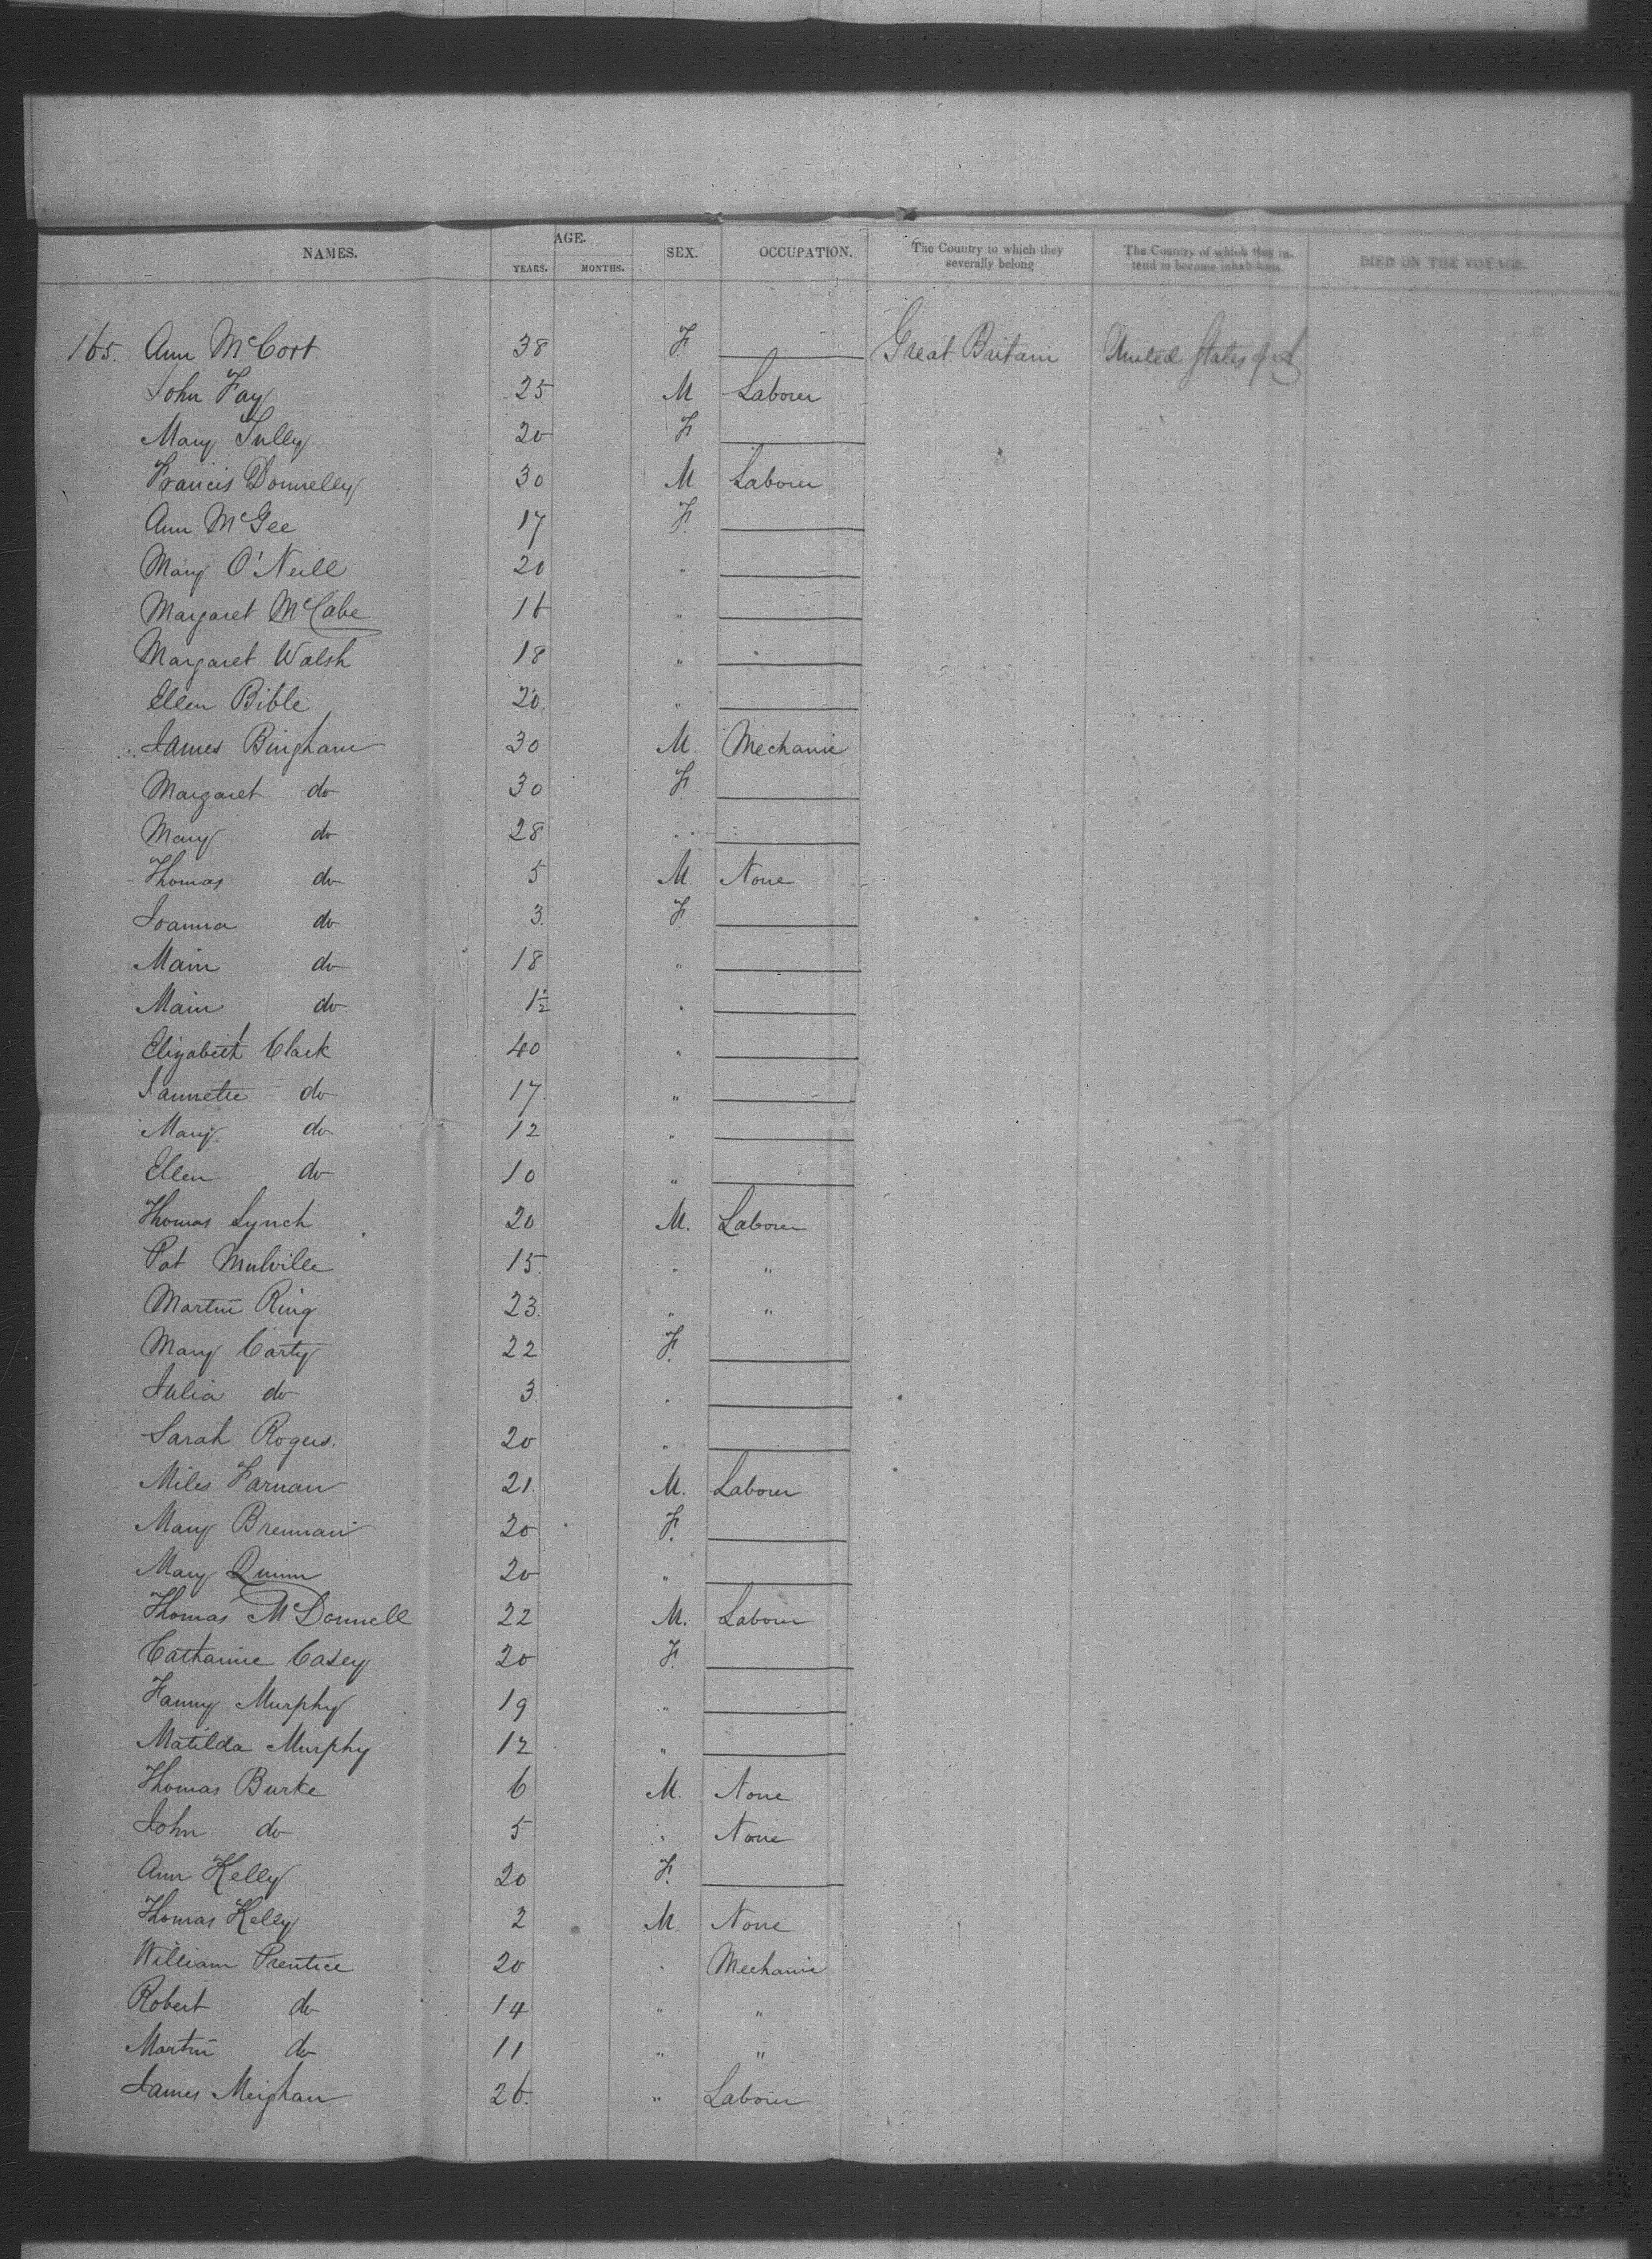 NAMES. AGE. YEARS. MONTHS. SEX. OCCUPATION. The Country to which they severally belong The Country of which they intend to become inhabitants. DIED ON THE VOYAGE.
165. Ann McCort 38 F Great Britain United States of A
John Fay 25 M Laborer
Mary Tully 20 F
Francis Donnelly 30 M Laborer
Ann McGee 17 F.
Mary O'Neill 20 "
Margaret McCabe 16 "
Margaret Walsh 18 "
Ellen Bible 20. "
James Bingham 30 M. Mechanic
Margaret do 30 F
Mary do 28 "
Thomas do 5 M. None
Joanna do 3. F.
Main do 18 "
Main do 1½ "
Elizabeth Clark 40 "
Jannette do 17. "
Mary do 12 "
Ellen do 10 "
Thomas Lynch 20 M. Laborer
Pat Mulville 15. " "
Martin Ring 23. " "
Mary Carty 22 F.
Julia do 3 "
Sarah Rogers. 20 "
Miles Farnan 21. M. Laborer
Mary Brennan 20 F.
Mary Quinn 20 "
Thomas McDonnell 22 M. Laborer
Catharine Casey 20 F.
Fanny Murphy 19 "
Matilda Murphy 12 "
Thomas Burke 6 M. None
John do 5 " None
Ann Kelly 20 F.
Thomas Kelly 2 M None
William Prentice 20 " Mechanic
Robert do 14 " "
Martin do 11 " "
James Meighan 26. " Laborer